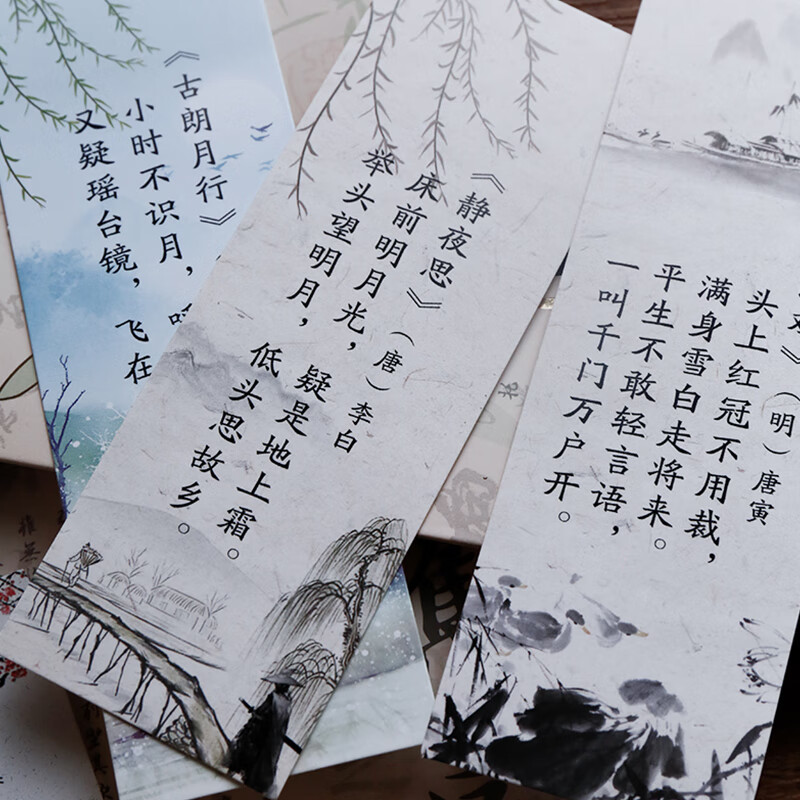 《古朗月行》
小时不识月，
又疑瑶台镜，飞在
《静夜思》（唐）李白
床前明月光，疑是地上霜。
举头望明月，低头思故乡。
鸡》（明）唐寅
头上红冠不用裁，
满身雪白走将来。
平生不敢轻言语，
一叫千门万户开。